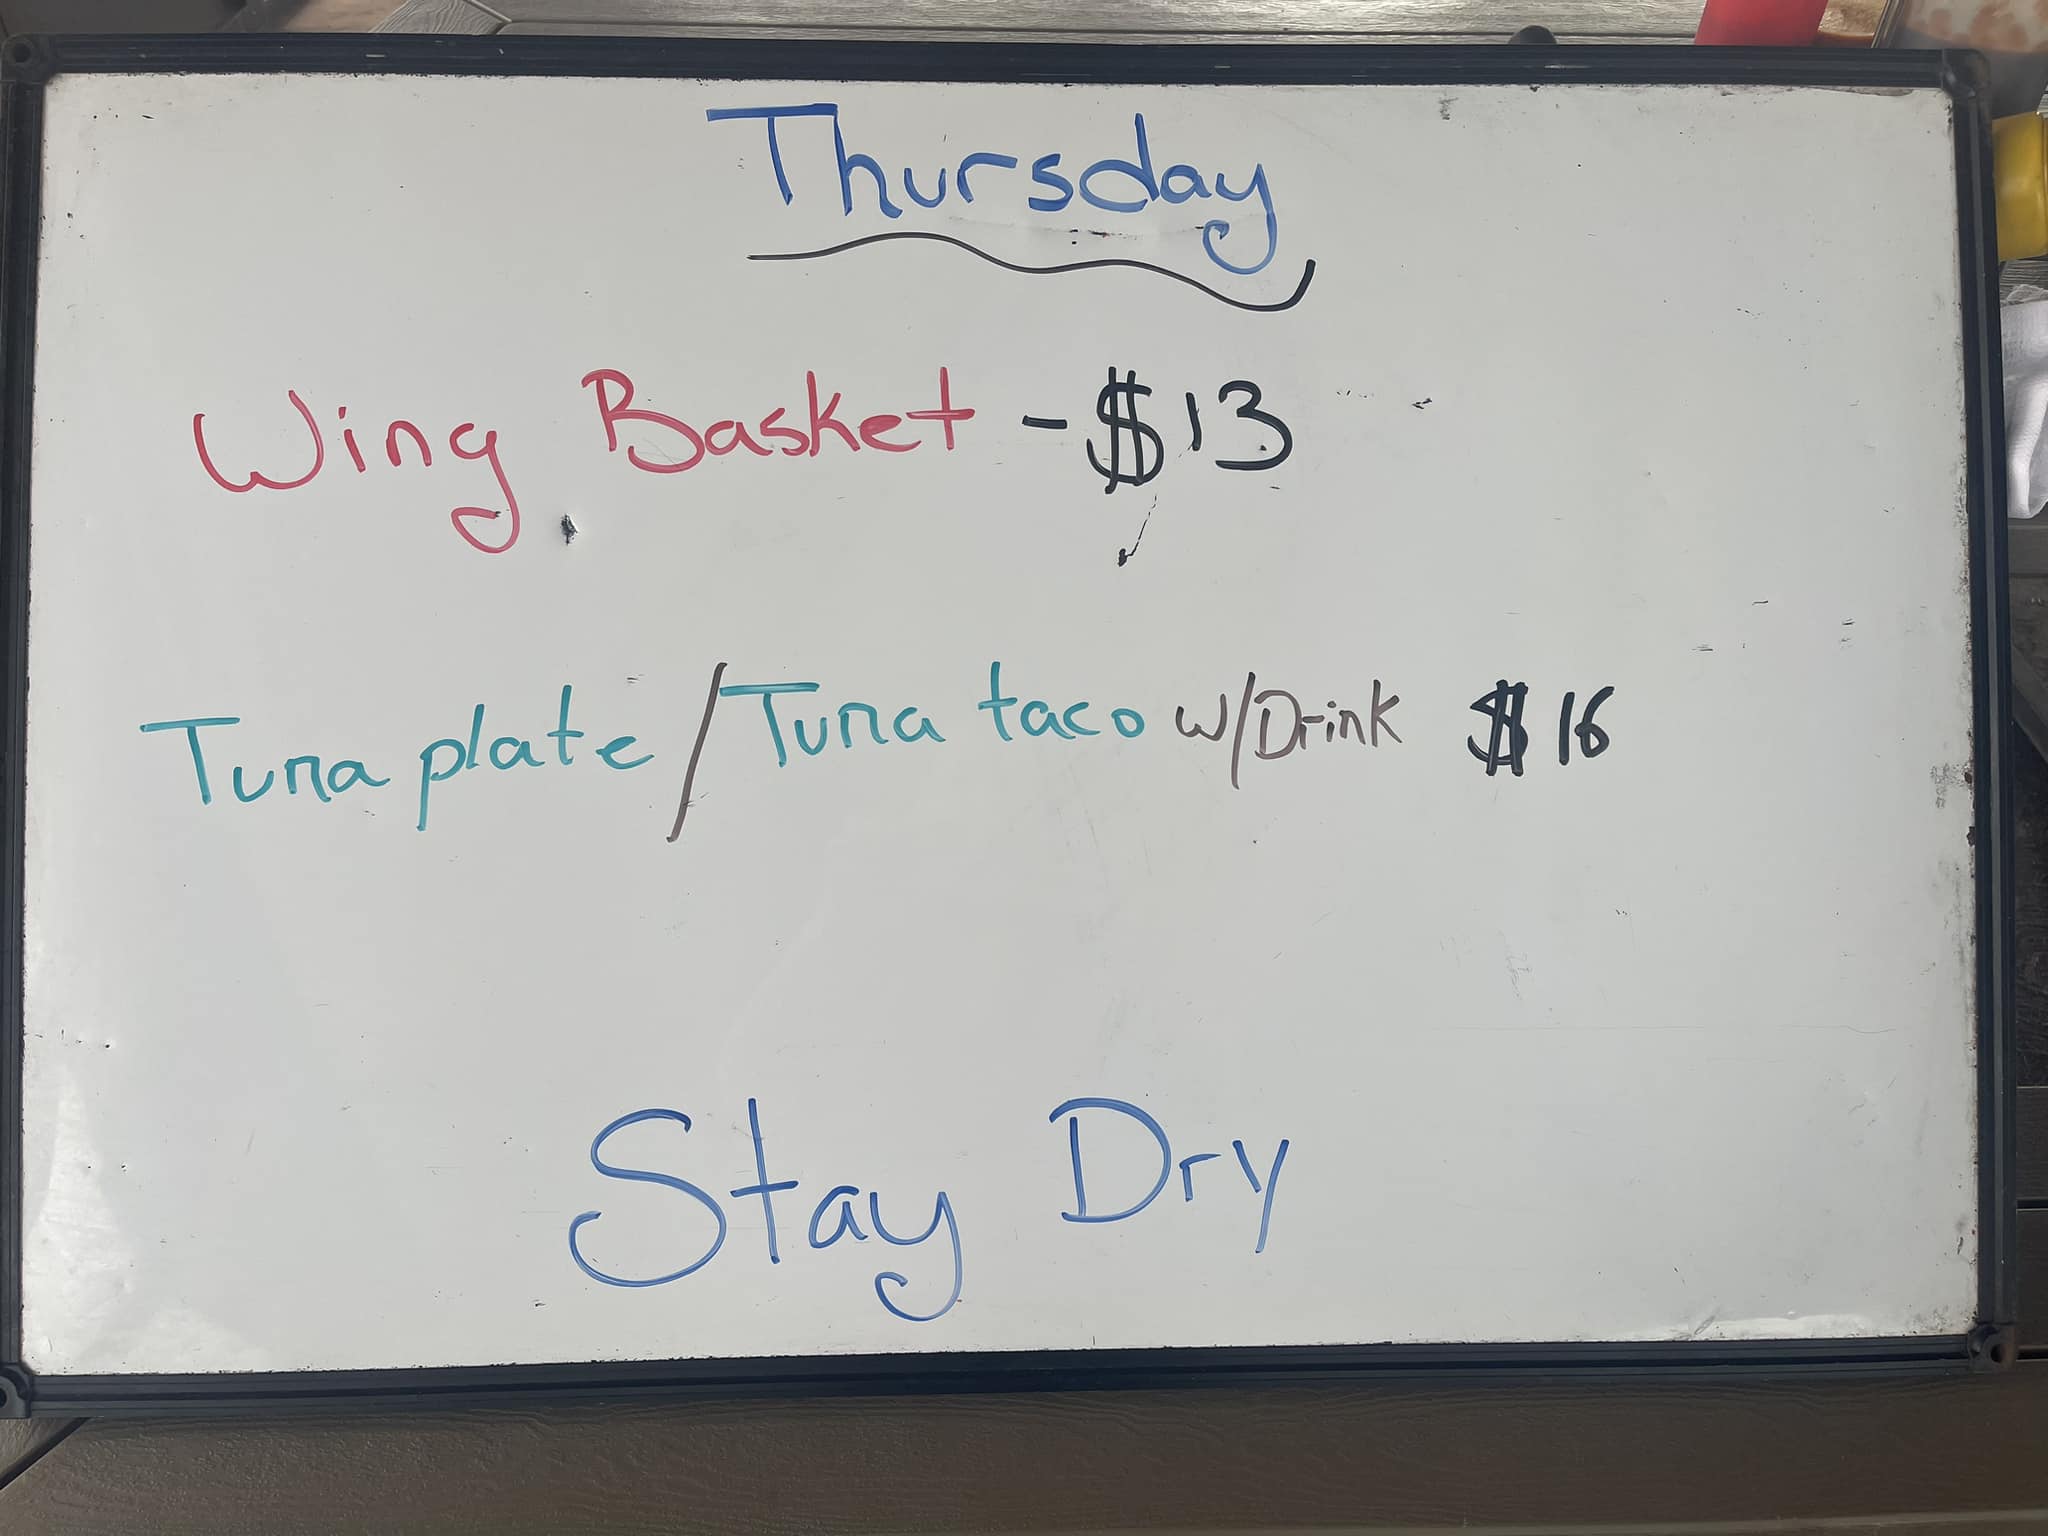 Thursday
Wing Basket - $13
Tuna plate / Tuna taco w/Drink $16
Stay Dry